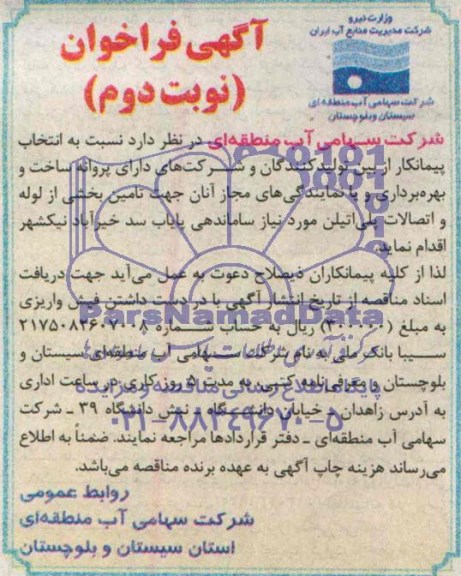 وزارت نیرو
شرکت مدیریت منابع آب ایران
شرکت سهامی آب منطقه‌ای
سیستان وبلوچستان
آگهی فراخوان
(نوبت دوم)
شرکت سهامی آب منطقه‌ای در نظر دارد نسبت به انتخاب
پیمانکار از بین تولیدکنندگان و شرکت‌های دارای پروانه ساخت و
بهره‌برداری و یا نمایندگی‌های مجاز آنان جهت تامین بخشی از لوله
و اتصالات پلی‌اتیلن مورد نیاز ساماندهی پایاب سد خیرآباد نیکشهر
اقدام نماید.
لذا از کلیه پیمانکاران ذیصلاح دعوت به عمل می‌آید جهت دریافت
اسناد مناقصه از تاریخ انتشار آگهی با در دست داشتن فیش واریزی
به مبلغ (۳۰۰۰۰۰) ریال به حساب شماره ۲۱۷۵۰۸۳۶۰۷۰۰۸
سیبا بانک ملی به نام شرکت سهامی آب منطقه‌ای سیستان و
بلوچستان و معرفی‌نامه کتبی، به مدت ۵ روز کاری در ساعت اداری
به آدرس زاهدان - خیابان دانشگاه - نبش دانشگاه ۳۹ - شرکت
سهامی آب منطقه‌ای - دفتر قراردادها مراجعه نمایند. ضمناً به اطلاع
می‌رساند هزینه چاپ آگهی به عهده برنده مناقصه می‌باشد.
روابط عمومی
شرکت سهامی آب منطقه‌ای
استان سیستان و بلوچستان
ParsNamadData
پایگاه اطلاع رسانی مناقصه و مزایده
۰۲۱-۸۸۳۴۹۶۷۰-۵